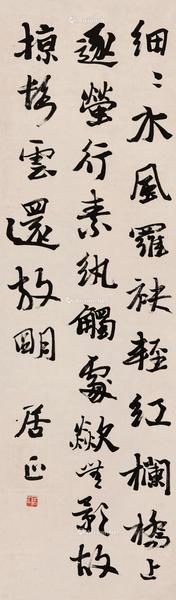 細〻水風羅袂輕紅欄橋上
逐螢行素紈觸處歘無影故
掠鬢雲還放明
居正